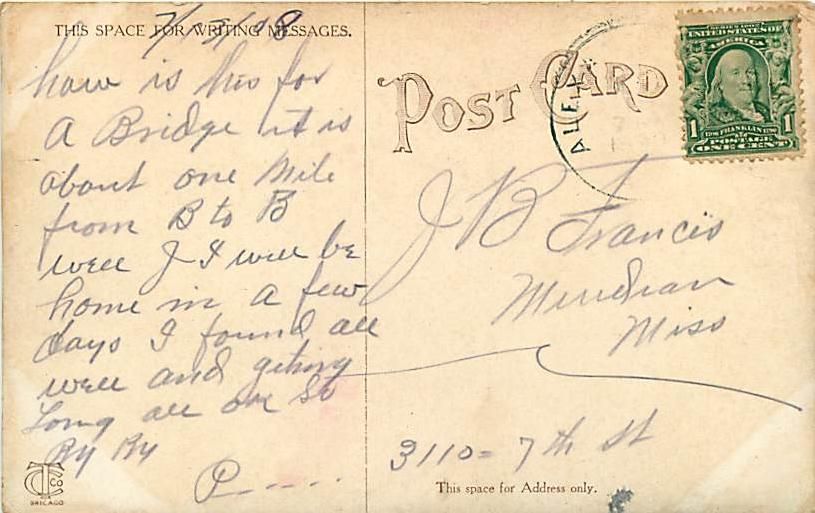 THIS SPACE FOR WRITING MESSAGES.
7/13/08
how is this for
A Bridge it is
about one Mile
from B to B
well J I will be
home in a few
days I found all
well and geting
Long all ok So
By By
P-----
POST CARD
ALEX
SERIES 1902
UNITED STATES OF
AMERICA
1 1706 FRANKLIN 1790 1
POSTAGE
ONE CENT
J B Francis
Meridian
Miss
3110= 7th St
This space for Address only.
CTCO
CHICAGO